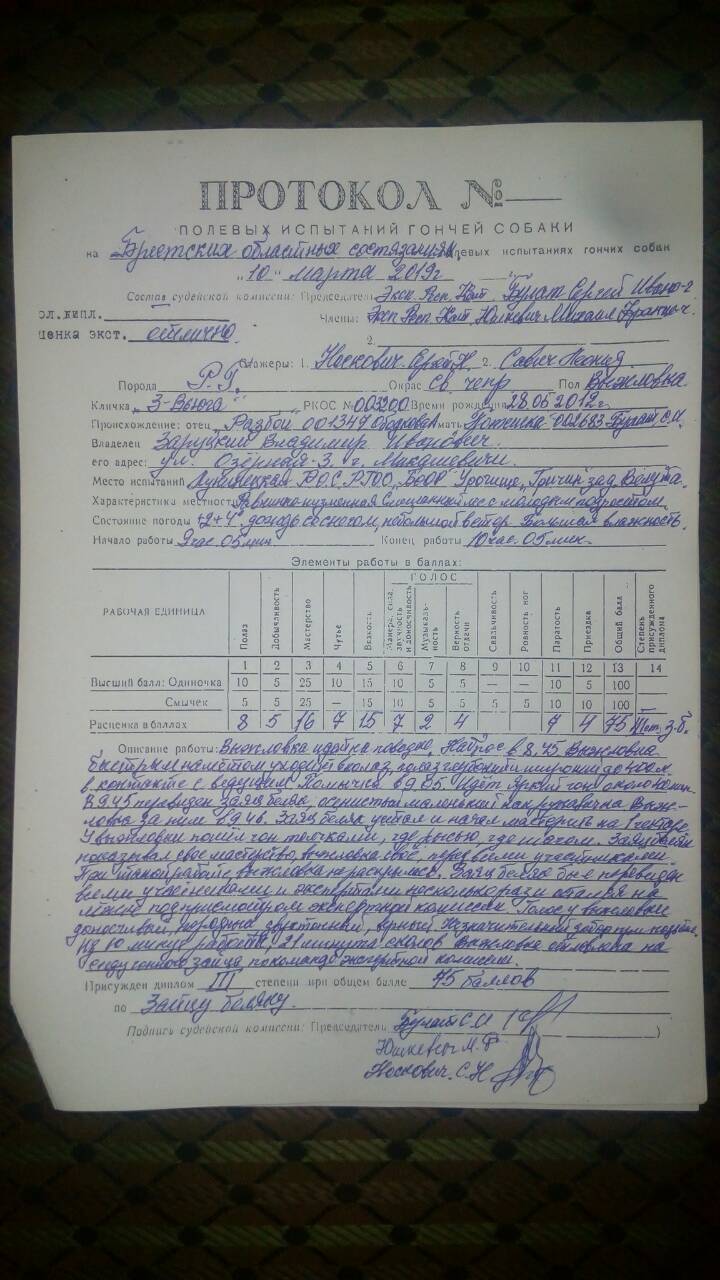 ПРОТОКОЛ №
ПОЛЕВЫХ ИСПЫТАНИЙ ГОНЧЕЙ СОБАКИ
на Брестских областных состязаниях полевых испытаниях гончих собак
"10" марта 2019 г
Состав судейской комиссии: Председатель Эксп. Респ. Кат Булат Сергей Ивано-г
ол. дипл. Члены: Эксп Респ. Кат. Юшкевич Михаил
ценка экст. отлично 2.
Стажеры: 1. Носкович Сергей Н. 2. Савич Леонид
Порода Р.Г. Окрас св. чепр Пол Выжловка
Кличка "З-Вьюга" РКОС № 003200 Время рождения 28.06 2012г
Происхождение: отец "Разбой 001347 мать 002683 Булат С.И.
Владелец Заруцкий Владимир Иванович.
его адрес: ул. Озёрная-3. г. Микашевичи.
Место испытаний Лунинецкая Р.О.С. РГОО "БООР" Урочище "Гричин" зад. Велута.
Характеристика местности Равнинно-низменная Смешанный лес с молодым подростом.
Состояние погоды "2+4° дождь со снегом, небольшой ветер. Большая влажность.
Начало работы 9 час. 05 мин. Конец работы 10 час. 05 мин.
Элементы работы в баллах:
РАБОЧАЯ ЕДИНИЦА Полаз Добычливость Мастерство Чутье Вязкость ГОЛОС Манера, сила, звучность и доносчивость Музыкальность Верность отдачи Свальчивость Ровность ног Паратость Приездка Общий балл Степень присужденного диплома
1 2 3 4 5 6 7 8 9 10 11 12 13 14
Высший балл: Одиночка 10 5 25 10 15 10 5 5 — — 10 5 100
Смычек 5 5 25 — 15 10 5 5 5 5 10 5 100
Расценка в баллах 8 5 16 7 15 7 2 4 7 4 75 III ст. З-б.
Описание работы: Выжловка идёт на поводке. Наброс в 8.45 Выжловка
быстрым намётом уходит в полаз, полаз глубокий и широкий до 400 м.
в контакте с ведущим. Помычка в 9.05. Идёт яркий гон около 40 мин.
В 9.45 перевиден заяц беляк, маленький как рукавичка Выж-
ловка за ним в 9.46. Заяц беляк устал и начал мастерить на 1 гектаре.
У выжловки пошёл гон толчками, где рысью где шагом. Заяц беляк
показывал своё мастерство, выжловка своё, перед всеми участниками.
При такой работе, выжловка не раскрылась. Заяц беляк был перевиден
всеми участниками и экспертами несколько раз и остался на
лёжке под присмотром экспертной комиссии. Голос у выжловки
доносчивый, звуктонный, верный. Незначительный
Из 60 минут работы, 21 минута сколов Выжловка отловлена на
следу гонного зайца, по команде экспертной комиссии.
Присужден диплом III степени при общем балле 75 баллов
по Зайцу беляку.
Подпись судейской комиссии: Председатель Булат С.И
Юшкевич М. Ф
Носкович. С. Н